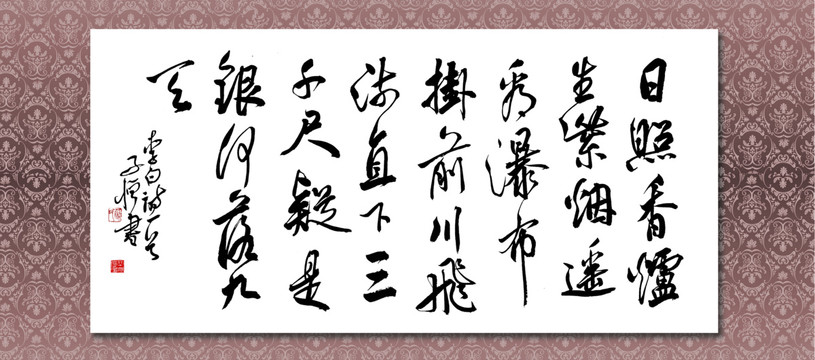 日照香爐
生紫烟遥
看瀑布
掛前川飛
流直下三
千尺疑是
銀河落九
天
李白詩一首
子恒書